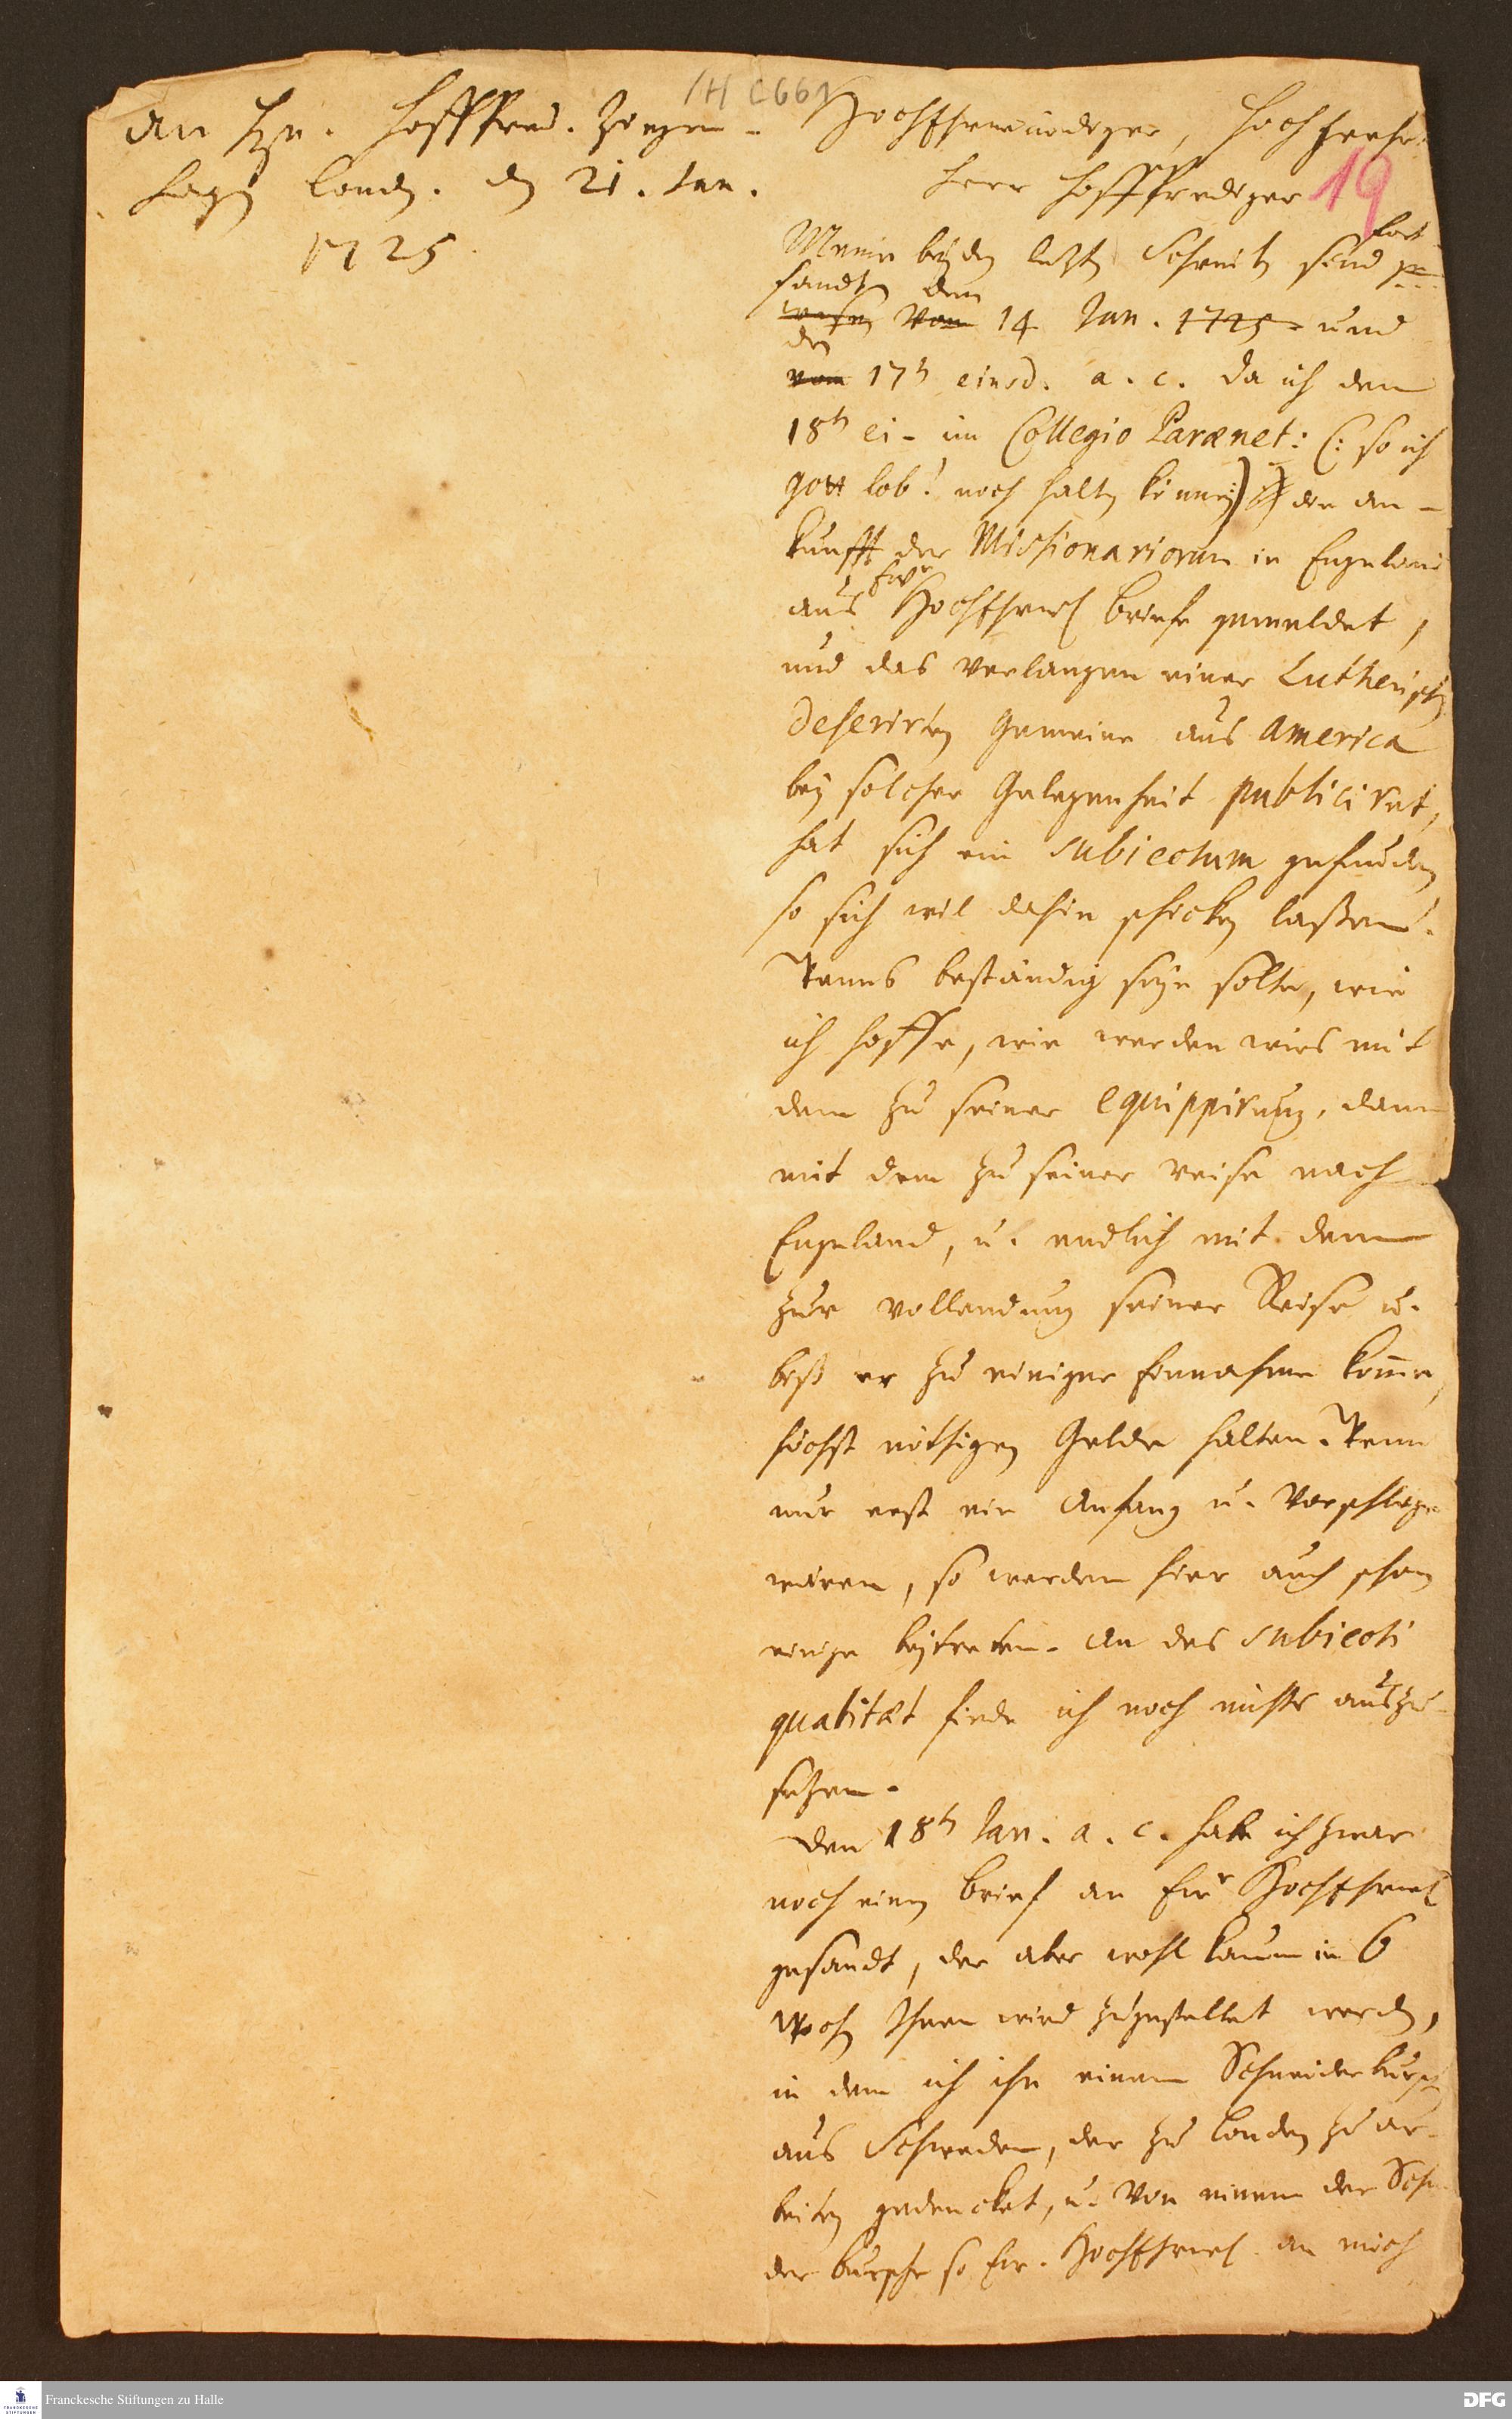 1 H C 661
an Hrn. Hoffpred. Ziegen-
hagen Lond. den 21. Jan.
1725.
19
HochEhrwürdiger, HochgeEhr
Herr Hoffprediger
Meine beyden letzten Schreiben sind fort
sandt den
vom 14 Jan. 1725. und
den
vom 17t eiusd. a. c. Da ich den
18t ei- im Collegio Parænet: (: so ich
gott lob! noch halten können) die an-
kunfft der Missionariorum in Engeland
Ewr
aus HochEhrw briefe gemeldet,
und das Verlangen einer Lutherischen
deserirten Gemeine aus America
bey solcher Gelegenheit publiciret,
hat sich ein subiectum gefunden
so sich wil dahin schicken laßen.
Wenns beständig seyn solte, wie
ich hoffe, wie werden wirs mit
dem zu seiner equippirung, dann
mit dem zu seiner reise nach
Engeland, u. endlich mit dem
zur vollendung seiner Reise u.
biß er zu einiger Einnahme komme,
höchst nöthigen Gelde halten. Wenn
nur erst ein Anfang u. Vorschläge
wären, so werden hier auch schon
einige beytreten. An des subiecti
qualitæt finde ich noch nichts auszu-
setzen.
Den 18t Jan. a. c. habe ich zwar
noch einen brief an Ewr HochEhrw
gesandt, der aber wohl kaum in 6
Wochen Ihnen wird zugestellet werden,
in dem ich ihn einem Schneiderbursch
aus Schweden, der zu Londen zu ar-
beiten gedencket, u. von einem der Schnei
der bursche so Ew. HochEhrw an mich
Franckesche Stiftungen zu Halle
FRANCKESCHE
STIFTUNGEN
DFG